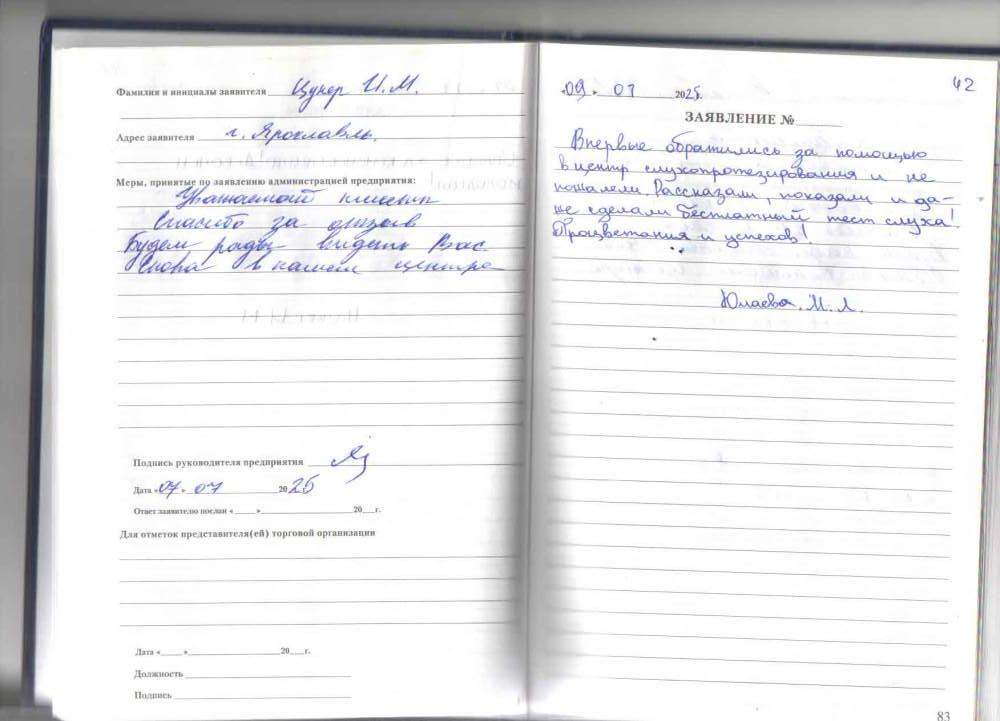 Фамилия и инициалы заявителя Цукер И.М.
Адрес заявителя г. Ярославль.
Меры, принятые по заявлению администрацией предприятия:
Уважаемый клиент
Спасибо за отзыв
Будем рады видеть Вас
Снова в нашем центре
Подпись руководителя предприятия
Дата «07» 07 2025
Ответ заявителю послан «___» ___ 20__г.
Для отметок представителя(ей) торговой организации
Дата «___» ___ 20__г.
Должность
Подпись
42
«09» 07 2025г.
ЗАЯВЛЕНИЕ №
Впервые обратились за помощью
в центр слухопротезирования и не
пожалели. Рассказали, показали и да-
же сделали бесплатный тест слуха!
Процветания и успехов!
Юлаева. М. Л.
83